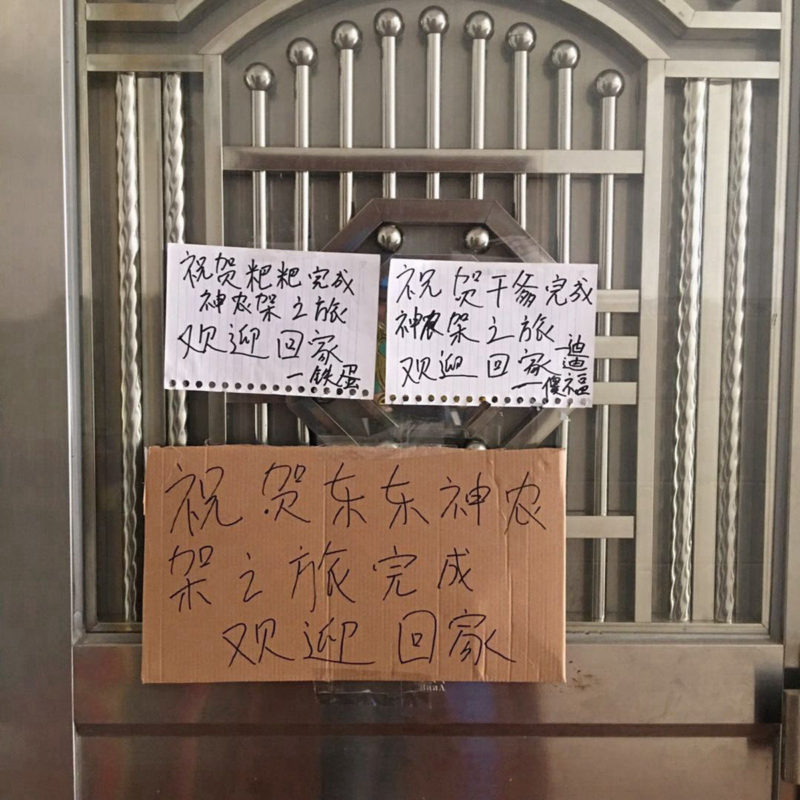 祝贺粑粑完成
神农架之旅
欢迎回家
一铁蛋
祝贺干爸完成
神农架之旅
欢迎回家
一迪迪
一傻福
祝贺东东神农
架之旅完成
欢迎回家